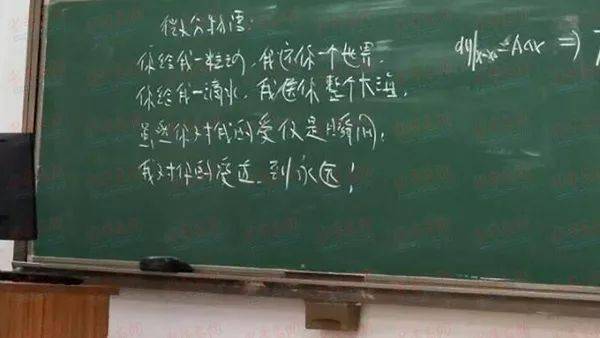 微积分物语：
你给我一粒沙，我还你一个世界．
你给我一滴水，我还你整个大海．
虽然你对我的爱仅是瞬间，
我对你的爱直到永远！
dy|x=x₀=AΔx ⇒